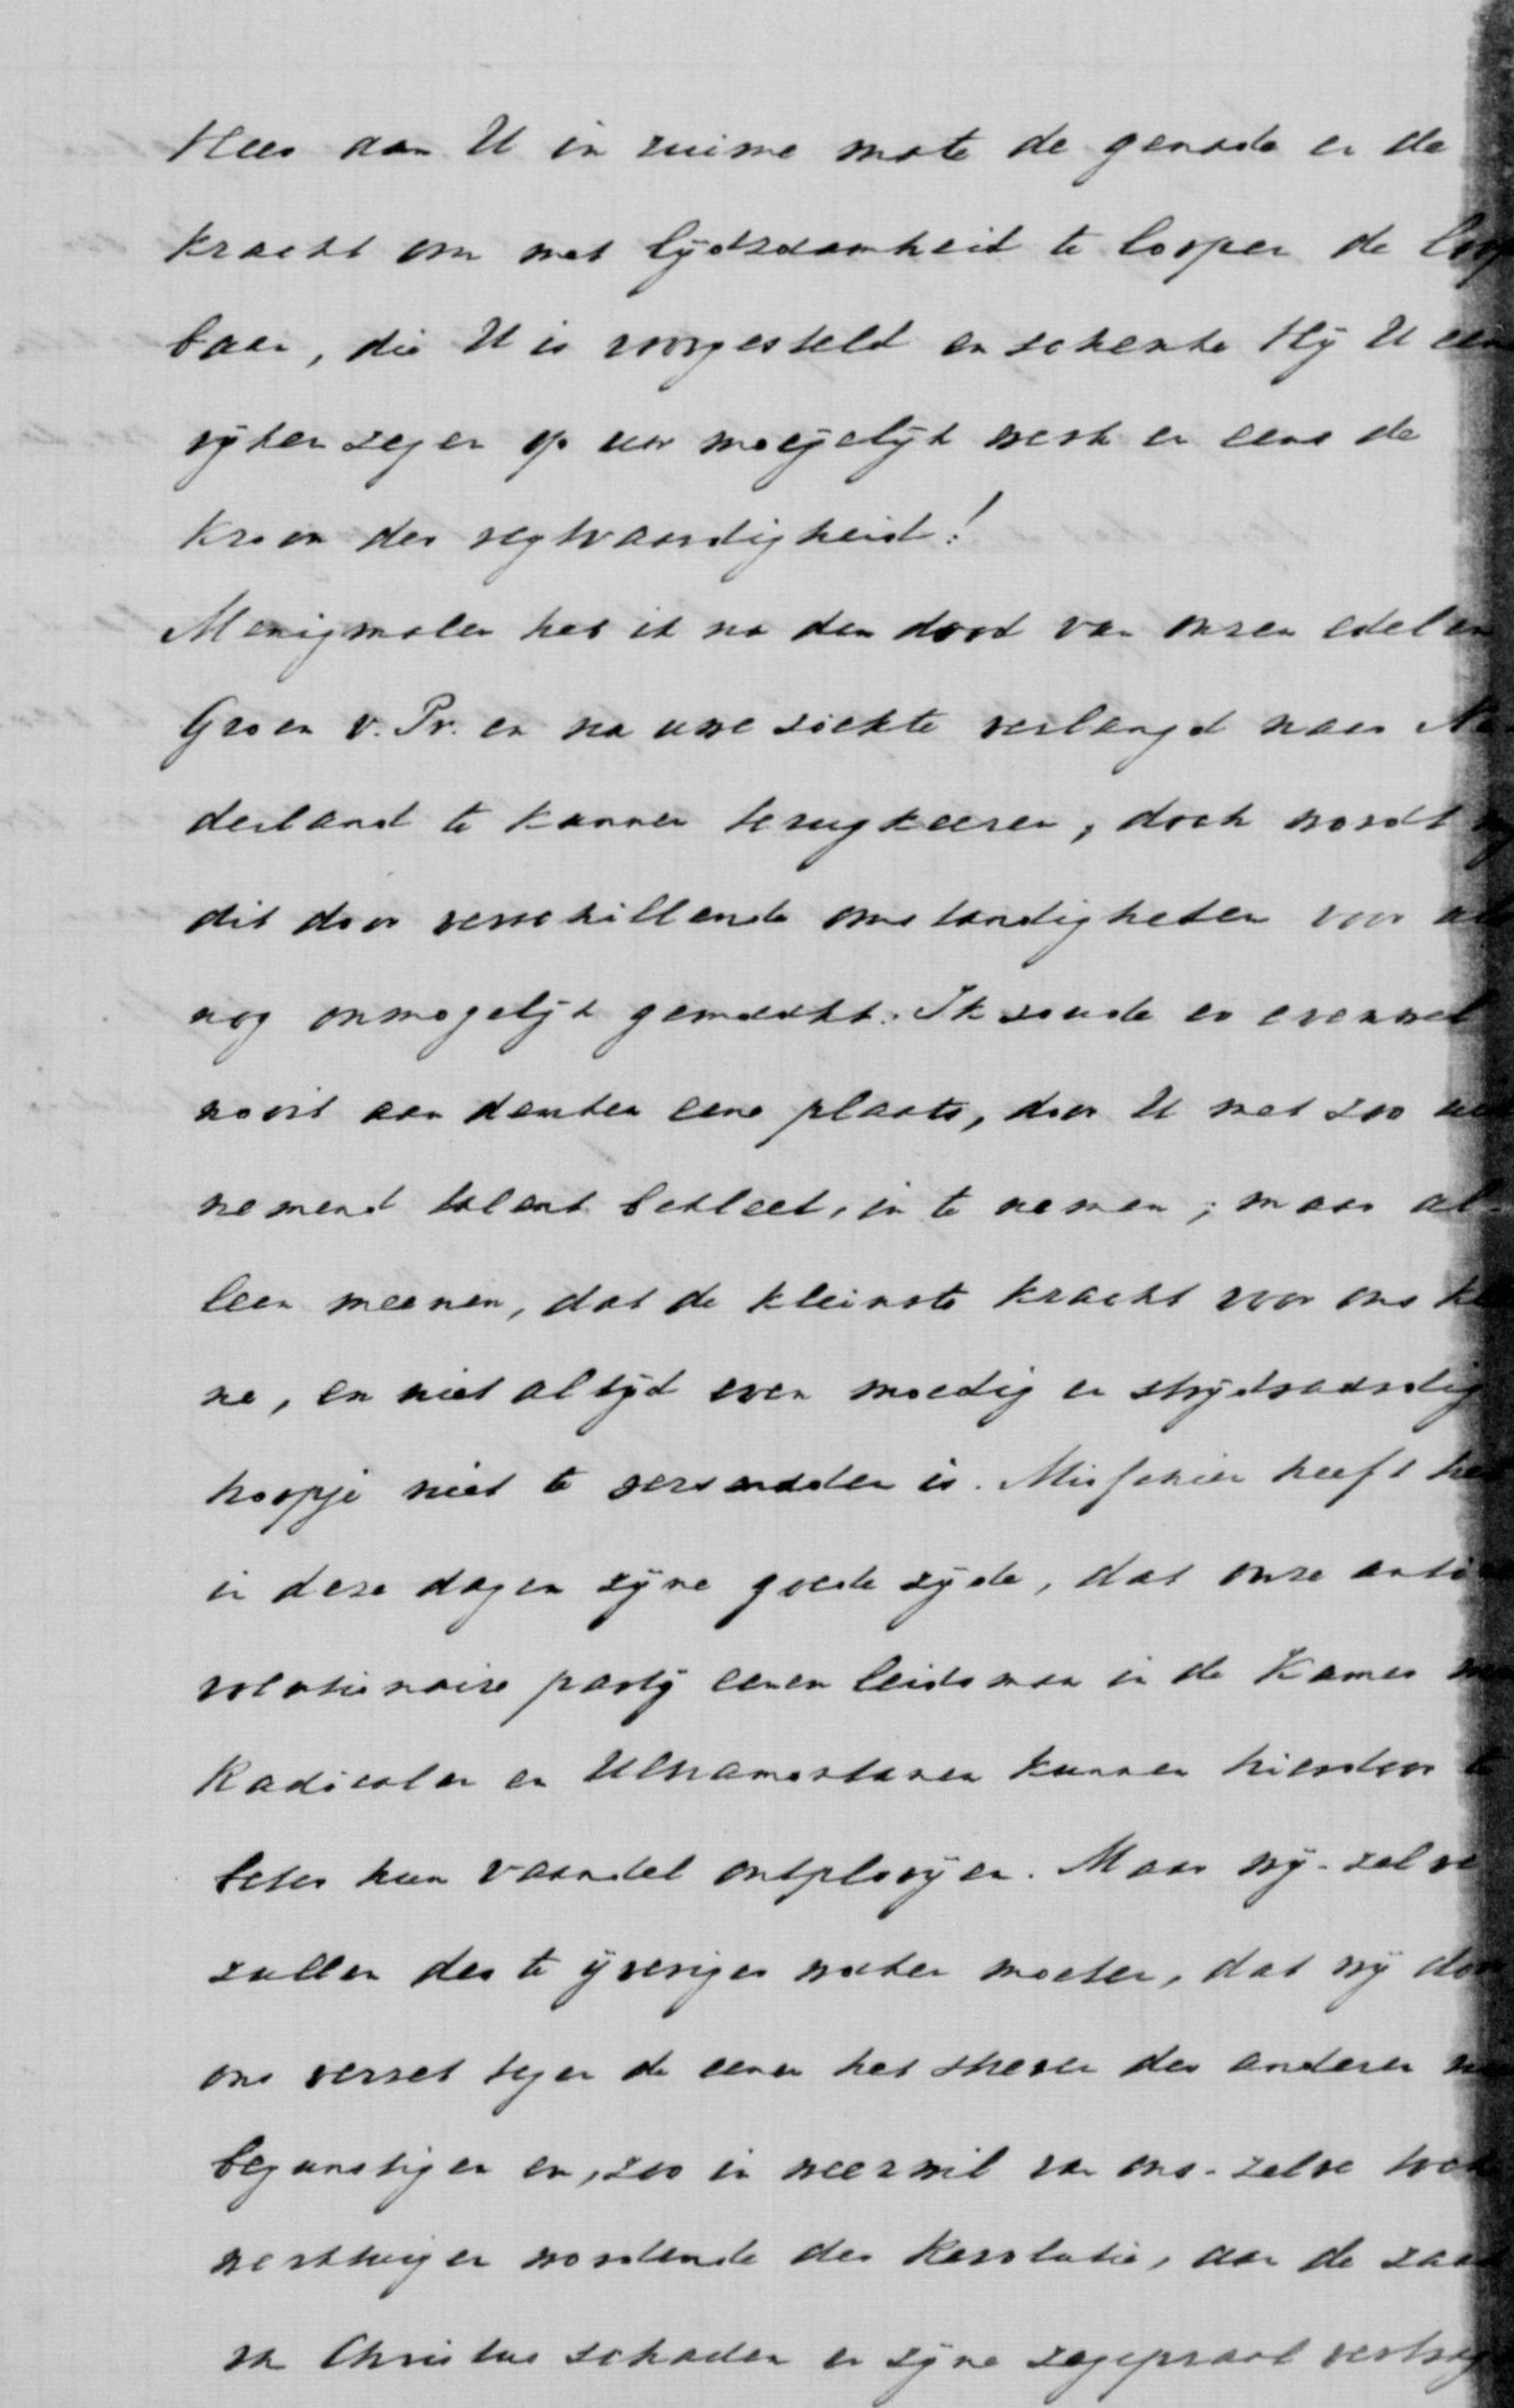 Heer aan U in ruime mate de genade en de
kracht om met lijdzaamheid te loopen de loop
baan, die U is voorgesteld en schenke Hij U een
rijken zegen op uw moeijelijk werk en eens de
kroon der regtvaardigheid!
Menigmalen heb ik na den dood van onzen edelen
Groen v. Pr. en na uwe ziekte verlangd naar Ne
derland te kunnen terugkeeren, doch wordt mij
dit door verschillende omstandigheden voor als
nog onmogelijk gemaakt. Ik zoude er evenwel
nooit aan denken eene plaats, door U met zoo uit
nemend talent bekleed, in te nemen; maar al-
leen meenen, dat de kleinste kracht voor ons klei
ne, en niet altijd even moedig en strijdvaardig
hoopje niet te versmaden is. Misschien heeft het
in deze dagen zijne goede zijde, dat onze anti
volutionaire partij eenen leidsman in de Kamer
Radicalen en Ultramontanen kunnen hierdoor te
beter hun vaandel ontplooijen. Maar wij-zelve
zullen des te ijveriger waken moeten, dat wij door
ons verzet tegen de eenen het streven der anderen
begunstigen en, zoo in weerwil van ons-zelve
werktuigen wordende der Revolutie, aan de zaak
van Christus schaden en zijne zegepraal vertrag